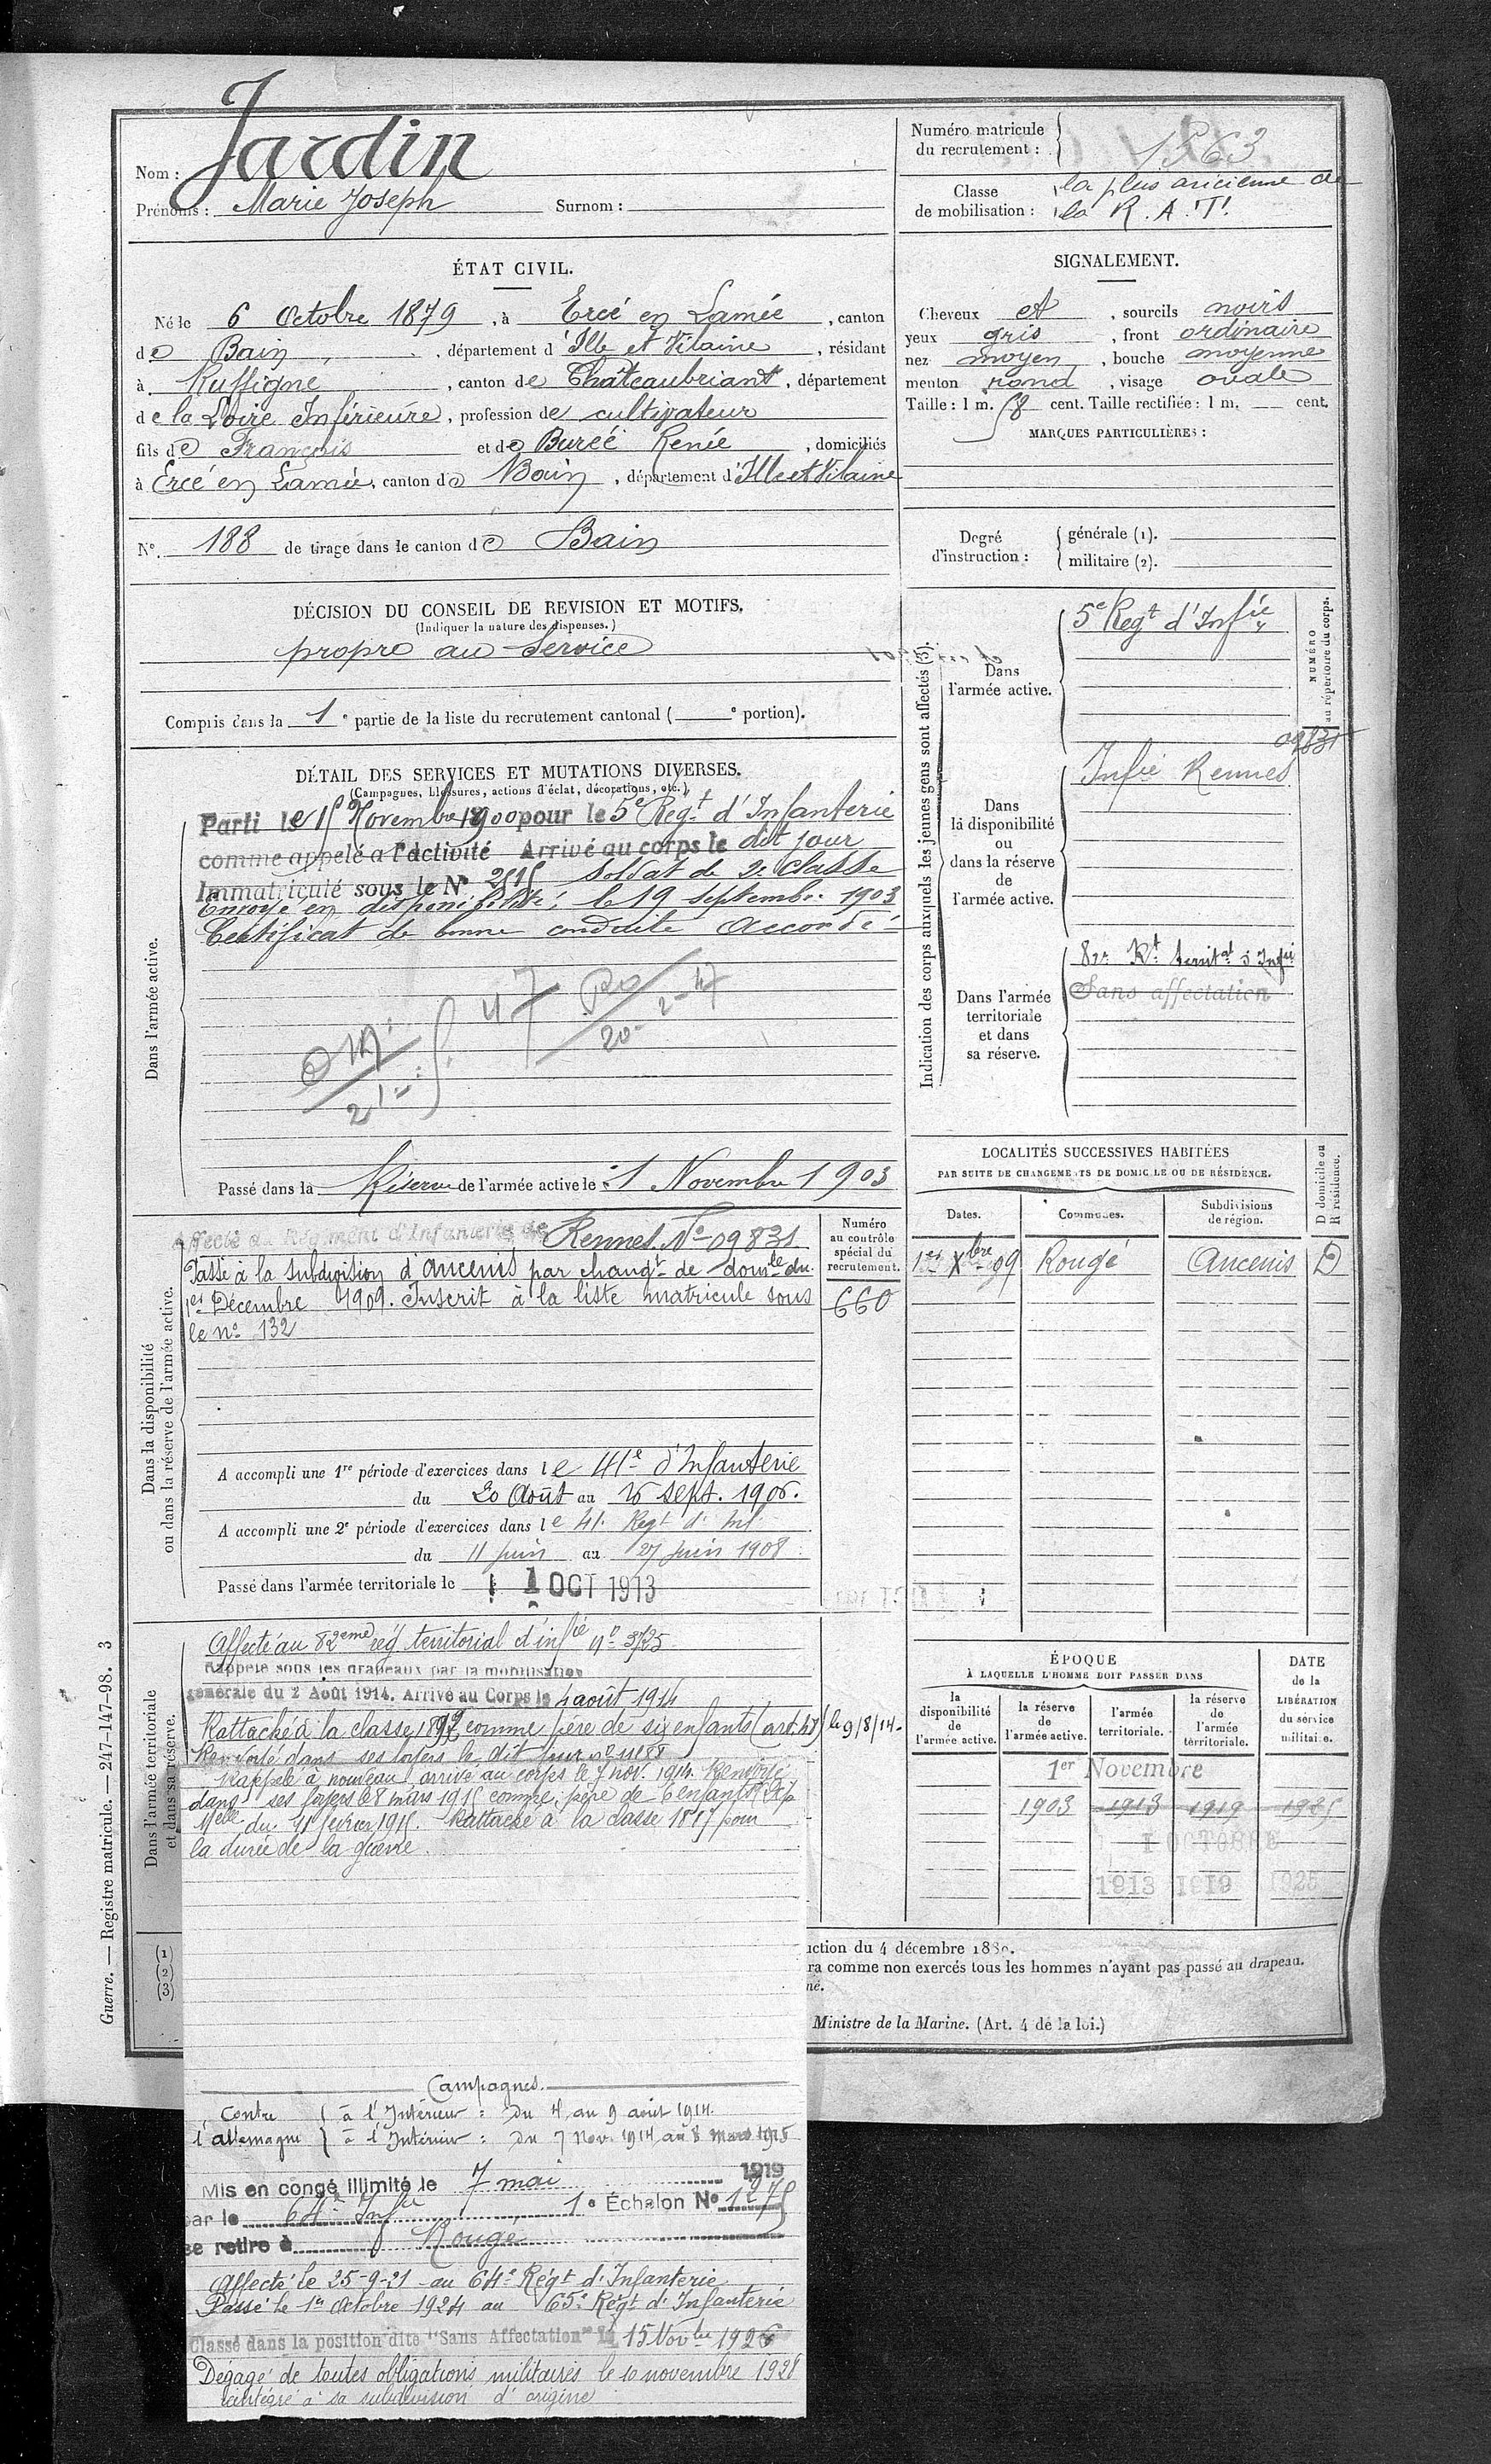 Jardin
Nom :
Prénoms : Marie Joseph Surnom :
Numéro matricule
du recrutement : 1563
Classe
de mobilisation : la plus ancienne de
la R. A. T.
ÉTAT CIVIL.
Né le 6 Octobre 1879, à Ercé en Lamée, canton
de Bain, département d'Ille et Vilaine, résidant
à Ruffigné, canton de Châteaubriant, département
de la Loire Inférieure, profession de cultivateur
fils de François et de Bureé Renée, domiciliés
à Ercé en Lamée, canton de Bain, département d'Ille et Vilaine
N°. 188 de tirage dans le canton de Bain
SIGNALEMENT.
Cheveux et, sourcils noirs
yeux gris, front ordinaire
nez moyen, bouche moyenne
menton rond, visage ovale
Taille : 1 m. 58 cent. Taille rectifiée : 1 m. cent.
MARQUES PARTICULIÈRES :
Degré
d'instruction :
générale (1).
militaire (2).
DÉCISION DU CONSEIL DE REVISION ET MOTIFS.
(Indiquer la nature des dispenses.)
propre au service
Compris dans la 1e partie de la liste du recrutement cantonal ( e portion).
DÉTAIL DES SERVICES ET MUTATIONS DIVERSES.
(Campagnes, blessures, actions d'éclat, décorations, etc.)
Dans l'armée active.
Parti le 15 Novembre 1900 pour le 5e Regt d'Infanterie
comme appelé à l'activité Arrivé au corps le dit jour
Immatriculé sous le N° 2515 Soldat de 2e classe
Envoyé en disponibilité le 19 septembre 1903
Certificat de bonne conduite Accordé
47
20-2-47
Passé dans la Réserve de l'armée active le 1 Novembre 1903
Indication des corps auxquels les jeunes gens sont affectés (3).
NUMÉRO
au répertoire du corps.
Dans
l'armée active.
5e Regt d'Infie
09831
Dans
la disponibilité
ou
dans la réserve
de
l'armée active.
Infie Rennes
Dans l'armée
territoriale
et dans
sa réserve.
82e Rt territal d'Infie
Sans affectation
Dans la disponibilité
ou dans la réserve de l'armée active.
Numéro
au contrôle
spécial du
recrutement.
660
Affecté au Régiment d'Infanterie de Rennes N° 09831
Passé à la subdivision d'Ancenis par changt de domle du
1er Décembre 1909. Inscrit à la liste matricule sous
le n° 132
A accompli une 1re période d'exercices dans le 41e d'Infanterie
du 20 Août au 16 sept. 1906.
A accompli une 2e période d'exercices dans le 41e Regt d'Inf
du 11 juin au 27 juin 1908
Passé dans l'armée territoriale le 1 OCT 1913
LOCALITÉS SUCCESSIVES HABITÉES
PAR SUITE DE CHANGEMENTS DE DOMICILE OU DE RÉSIDENCE.
D domicile ou
R résidence.
Dates. Communes. Subdivisions
de région.
1er Xbre 09 Rougé Ancenis D
Dans l'armée territoriale
et dans sa réserve.
Affecté au 82eme rég territorial d'infie n° 3725
Rappelé sous les drapeaux par la mobilisation
générale du 2 Août 1914. Arrivé au Corps le 4 août 1914
Rattaché à la classe 1892 comme père de six enfants (art. 48) le 9/8/14.
Renvoyé dans ses foyers le dit jour
Rappelé à nouveau, arrivé au corps le 7 nov. 1914. Renvoyé
dans ses foyers le 8 mars 1915 comme père de 6 enfants Dép
Melle du 11 février 1915. Rattaché à la classe 1887 pour
la durée de la guerre.
ÉPOQUE
À LAQUELLE L'HOMME DOIT PASSER DANS
la
disponibilité
de
l'armée active.
la réserve
de
l'armée active.
l'armée
territoriale.
la réserve
de
l'armée
territoriale.
DATE
de la
LIBÉRATION
du service
militaire.
1er Novembre
1903 1913 1919 1925
1 OCTOBRE
1913 1919 1925
(1)
(2)
(3)
uction du 4 décembre 1889.
ra comme non exercés tous les hommes n'ayant pas passé au drapeau.
né.
Ministre de la Marine. (Art. 4 de la loi.)
Guerre. — Registre matricule. — 247-147-98. 3
Campagnes.
Contre
l'allemagne
à l'Intérieur : Du 4 au 9 août 1914.
à l'Intérieur : Du 7 Nov. 1914 au 8 Mars 1915
Mis en congé illimité le 7 mai 1919
par le 64e Infie 1e Échelon N° 1275
se retire à Rougé
Affecté le 25-9-21 au 64e Régt d'Infanterie
Passé le 1er Octobre 1924 au 65e Régt d'Infanterie
Classé dans la position dite "Sans Affectation" le 15 Novbre 1926
Dégagé de toutes obligations militaires le 10 novembre 1928
réintégré à sa subdivision d'origine